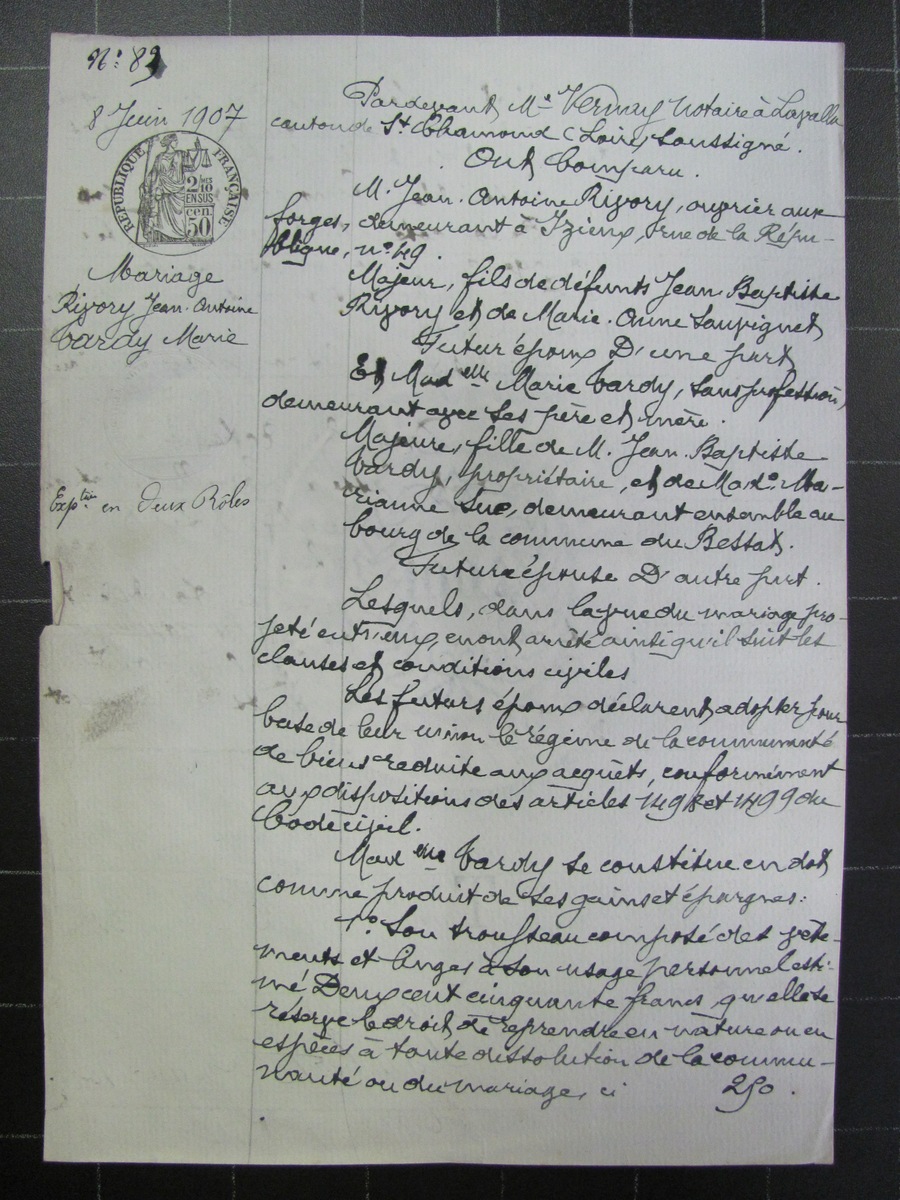 N: 89
8 Juin 1907
RÉPUBLIQUE FRANÇAISE
2/10 MES
EN SUS
50 cen
Mariage
Rivory Jean-Antoine
Bardy Marie
Exp.tion en Deux Rôles
Pardevant Me Vernay notaire à Lavalla
canton de St Chamond (Loire) Soussigné.
Ont Comparu.
M. Jean-Antoine Rivory, ouvrier aux
forges, demeurant à Izieux, rue de la Répu-
blique, n: 49.
Majeur, fils de défunts Jean-Baptiste
Rivory et de Marie-Anne Sauvignet
Futur époux D'une part
Et Mad elle Marie Bardy, sans profession,
demeurant avec ses père et mère.
Majeure, fille de M. Jean-Baptiste
Bardy, propriétaire, et de Made Ma-
rianne Suc, demeurant ensemble au
bourg de la commune du Bessat.
Future épouse D'autre part.
Lesquels, dans la vue du mariage pro-
jeté entr'eux, en ont arrêté ainsi qu'il suit les
clauses et conditions civiles
Les futurs époux déclarent adopter pour
base de leur union le régime de la communauté
de biens réduite aux acquêts, conformément
aux dispositions des articles 1498 et 1499 du
Code civil.
Mad elle Bardy se constitue en dot
comme produit de ses gains et épargnes:
1° Son trousseau composé des vête-
ments et linges à son usage personnel esti-
mé Deux cent cinquante francs, qu'elle se
réserve le droit de reprendre en nature ou en
espèces à toute dissolution de la commu-
nauté ou du mariage, ci 250.